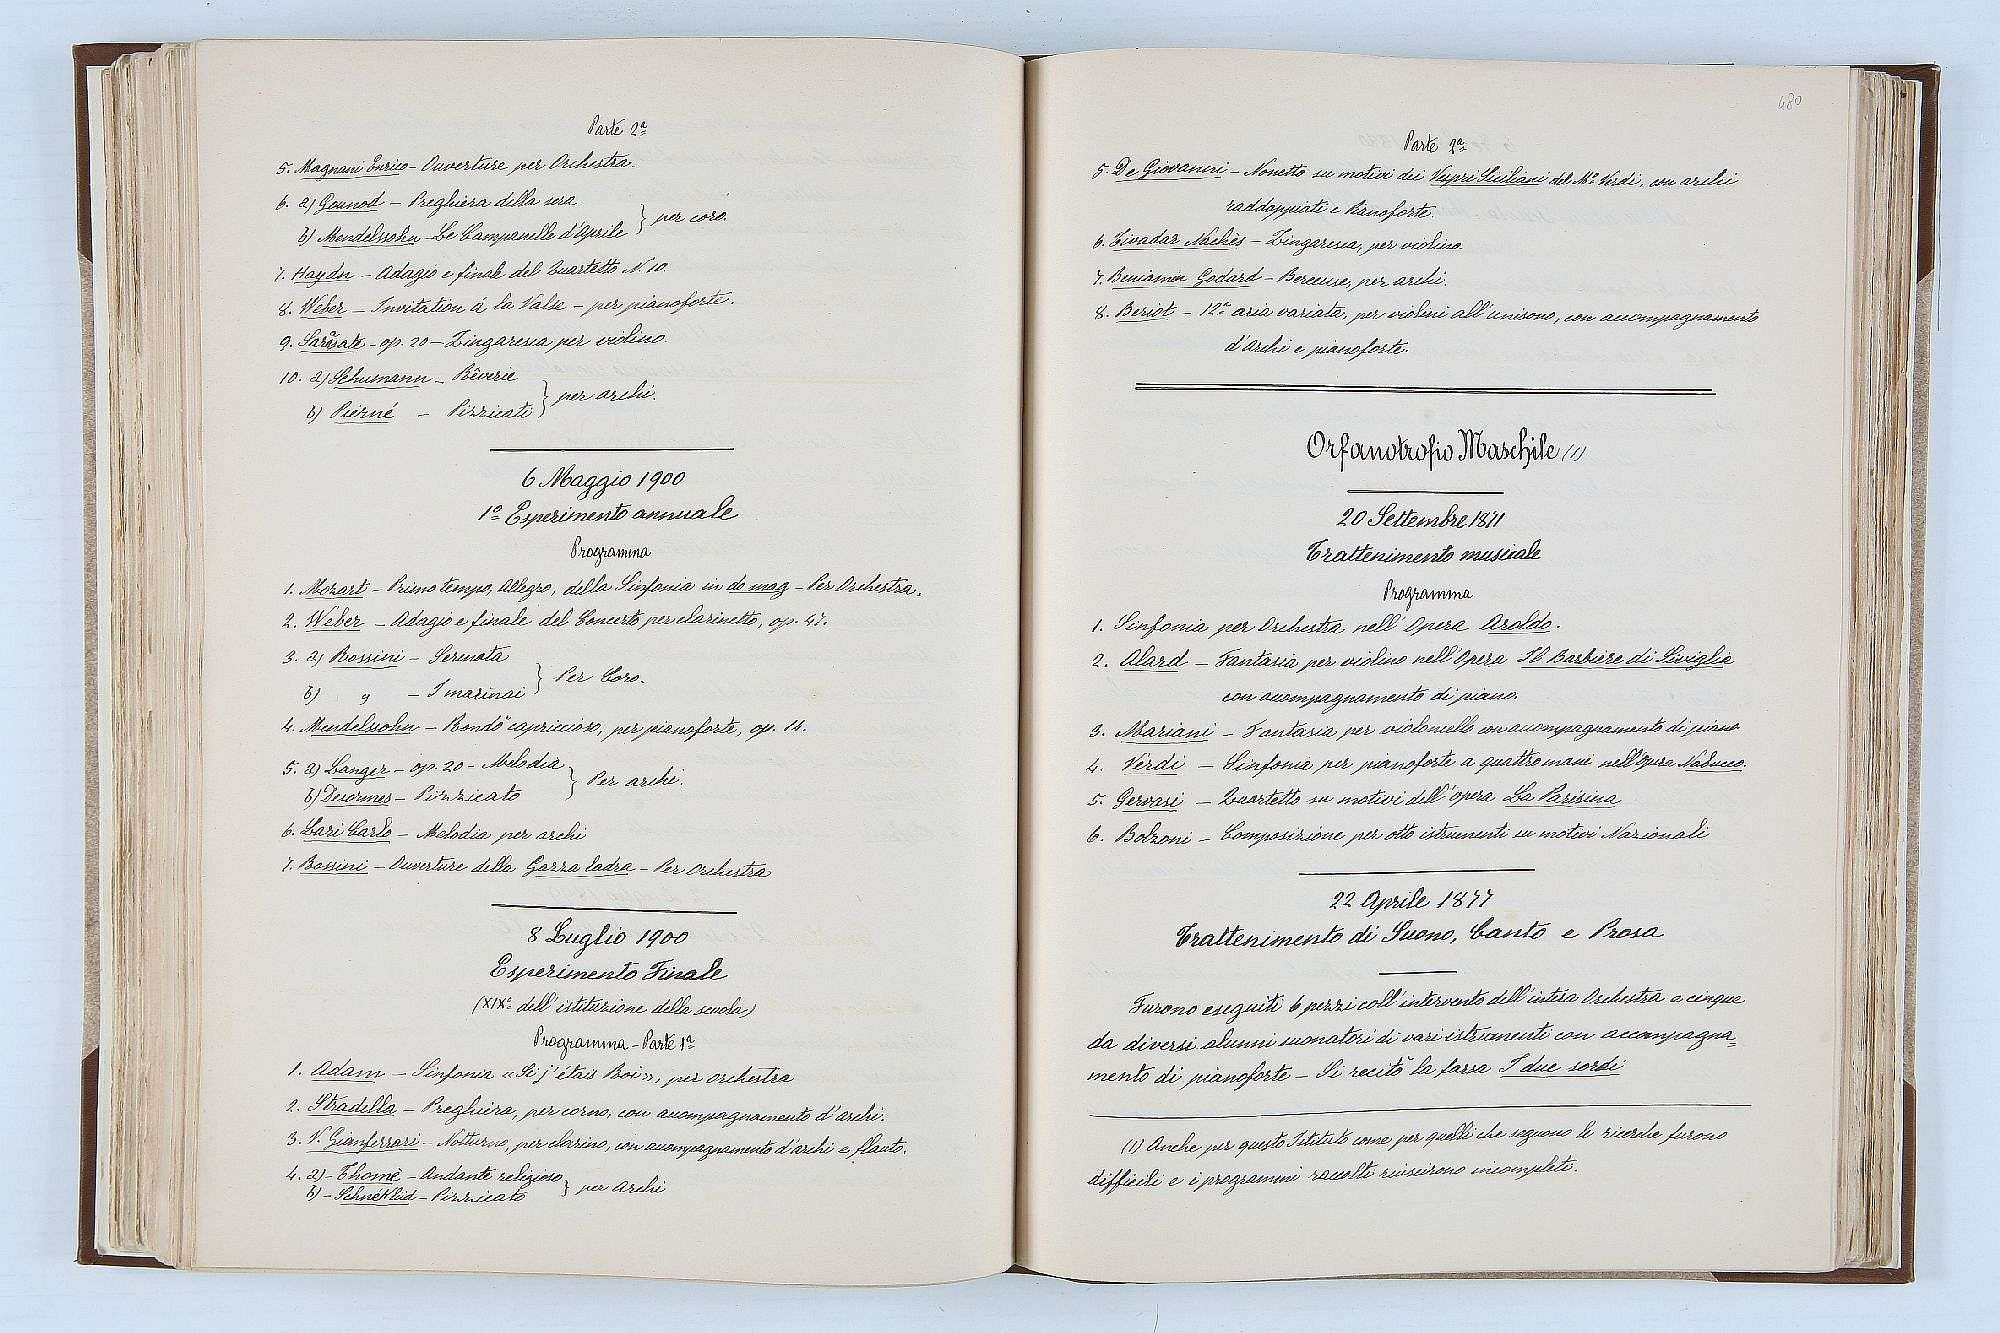 Parte 2ª
5. Magnani Enrico - Ouverture per Orchestra.
6. a) Gounod - Preghiera della sera
b) Mendelssohn - Le Campanelle d'Aprile } per coro.
7. Haydn - Adagio e finale del Quartetto N. 10.
8. Weber - Invitation à la Valse - per pianoforte.
9. Sarasate - op. 20 - Zingaresca per violino
10. a) Schumann - Rêverie
b) Pierné - Pizzicati } per archi.
6 Maggio 1900
1º Esperimento annuale
Programma
1. Mozart - Primo tempo, Allegro, della Sinfonia in do mag - Per Orchestra.
2. Weber - Adagio e finale del Concerto per clarinetto, op. 47.
3. a) Rossini - Serenata
b) " - I marinai } Per Coro.
4. Mendelssohn - Rondò capriccioso, per pianoforte, op. 14.
5. a) Langer - op. 20 - Melodia
b) Desormes - Pizzicato } Per archi.
6. Lari Carlo - Melodia per archi
7. Rossini - Ouverture della Gazza ladra - Per Orchestra
8 Luglio 1900
Esperimento Finale
(XIXº dell'istituzione della scuola)
Programma - Parte 1ª
1. Adam - Sinfonia « Si j'étais Roi », per orchestra
2. Stradella - Preghiera, per corno, con accompagnamento d'archi.
3. V. Gianferrari - Notturno, per clarino, con accompagnamento d'archi e flauto.
4. a) - Thomè - Andante religioso
b) - Schnéklüd - Pizzicato } per archi
480
Parte 2ª
5. De Giovanni - Nonetto su motivi dei Vespri Siciliani del Mº Verdi, con archi
raddoppiati e Pianoforte.
6. Tivadar Nachès - Zingaresca, per violino
7. Beniamin Godard - Berceuse, per archi.
8. Beriot - 12ª aria variata, per violini all'unisono, con accompagnamento
d'archi e pianoforte.
Orfanotrofio Maschile (1)
20 Settembre 1871
Trattenimento musicale
Programma
1. Sinfonia per Orchestra nell'Opera Aroldo.
2. Alard - Fantasia per violino nell'Opera Il Barbiere di Siviglia
con accompagnamento di piano.
3. Mariani - Fantasia per violoncello con accompagnamento di piano
4. Verdi - Sinfonia per pianoforte a quattro mani nell'Opera Nabucco.
5. Gervasi - Quartetto su motivi dell'opera La Parisina
6. Bolzoni - Composizione per otto istrumenti su motivi Nazionali
22 Aprile 1877
Trattenimento di Suono, Canto e Prosa
Furono eseguiti 6 pezzi coll'intervento dell'intera Orchestra e cinque
da diversi alunni suonatori di vari istrumenti con accompagna=
mento di pianoforte - Si recitò la farsa I due sordi
(1) Anche per questo Istituto come per quelli che seguono le ricerche furono
difficili e i programmi raccolti riuscirono incompleti.